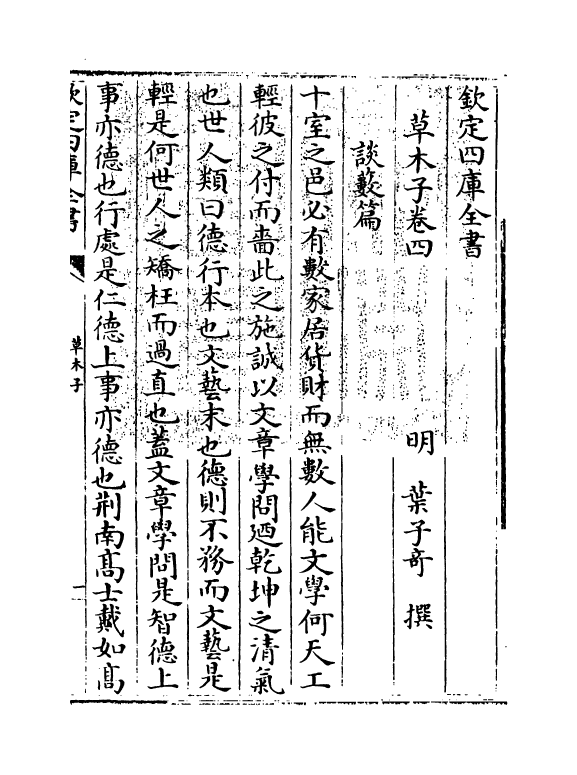 欽定四庫全書
草木子卷四
明 葉子竒 撰
談藪篇
十室之邑必有數家居貨財而無數人能文學何天工
輕彼之付而嗇此之施誠以文章學問廼乾坤之清氣
也世人類曰德行本也文藝末也德則不務而文藝是
輕是何世人之矯枉而過直也蓋文章學問是智德上
事亦德也行處是仁德上事亦德也荆南髙士戴如髙
欽定四庫全書
草木子
一